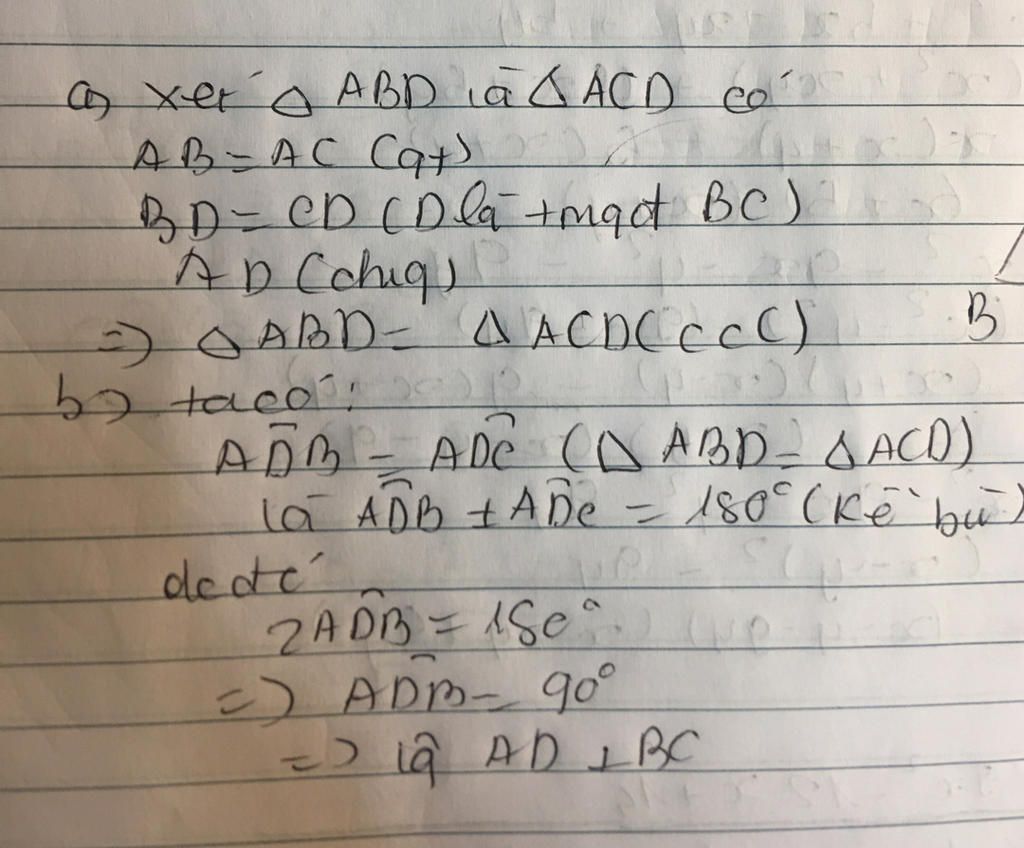 a) xét Δ ABD và Δ ACD có
AB = AC (gt)
BD = CD (D là trung điểm BC)
AD (chung)
=> Δ ABD = Δ ACD (c c c)
B
b) ta có:
ADB̂ = ADĈ (Δ ABD = Δ ACD)
và ADB̂ + ADĈ = 180° (kề bù)
do đó
2ADB̂ = 180°
=> ADB̂ = 90°
=> AD ⊥ BC